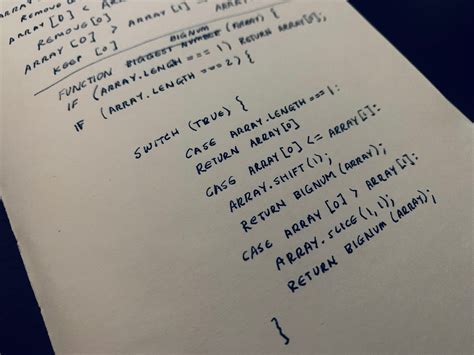 ARRAY [0] < ARR
REMOVE [0]
ARRAY [0] > ARRAY [1] —
KEEP [0]
BIGNUM
FUNCTION BIGGEST NUMBER (ARRAY) {
IF (ARRAY.LENGH === 1) RETURN ARRAY[0];
IF (ARRAY.LENGTH === 2) {
SWITCH (TRUE) {
CASE ARRAY.LENGTH === 1:
RETURN ARRAY[0]
CASE ARRAY[0] <= ARRAY[1]:
ARRAY.SHIFT(1);
RETURN BIGNUM (ARRAY);
CASE ARRAY [0] > ARRAY[1]:
ARRAY.SLICE (1, 1);
RETURN BIGNUM (ARRAY);
}